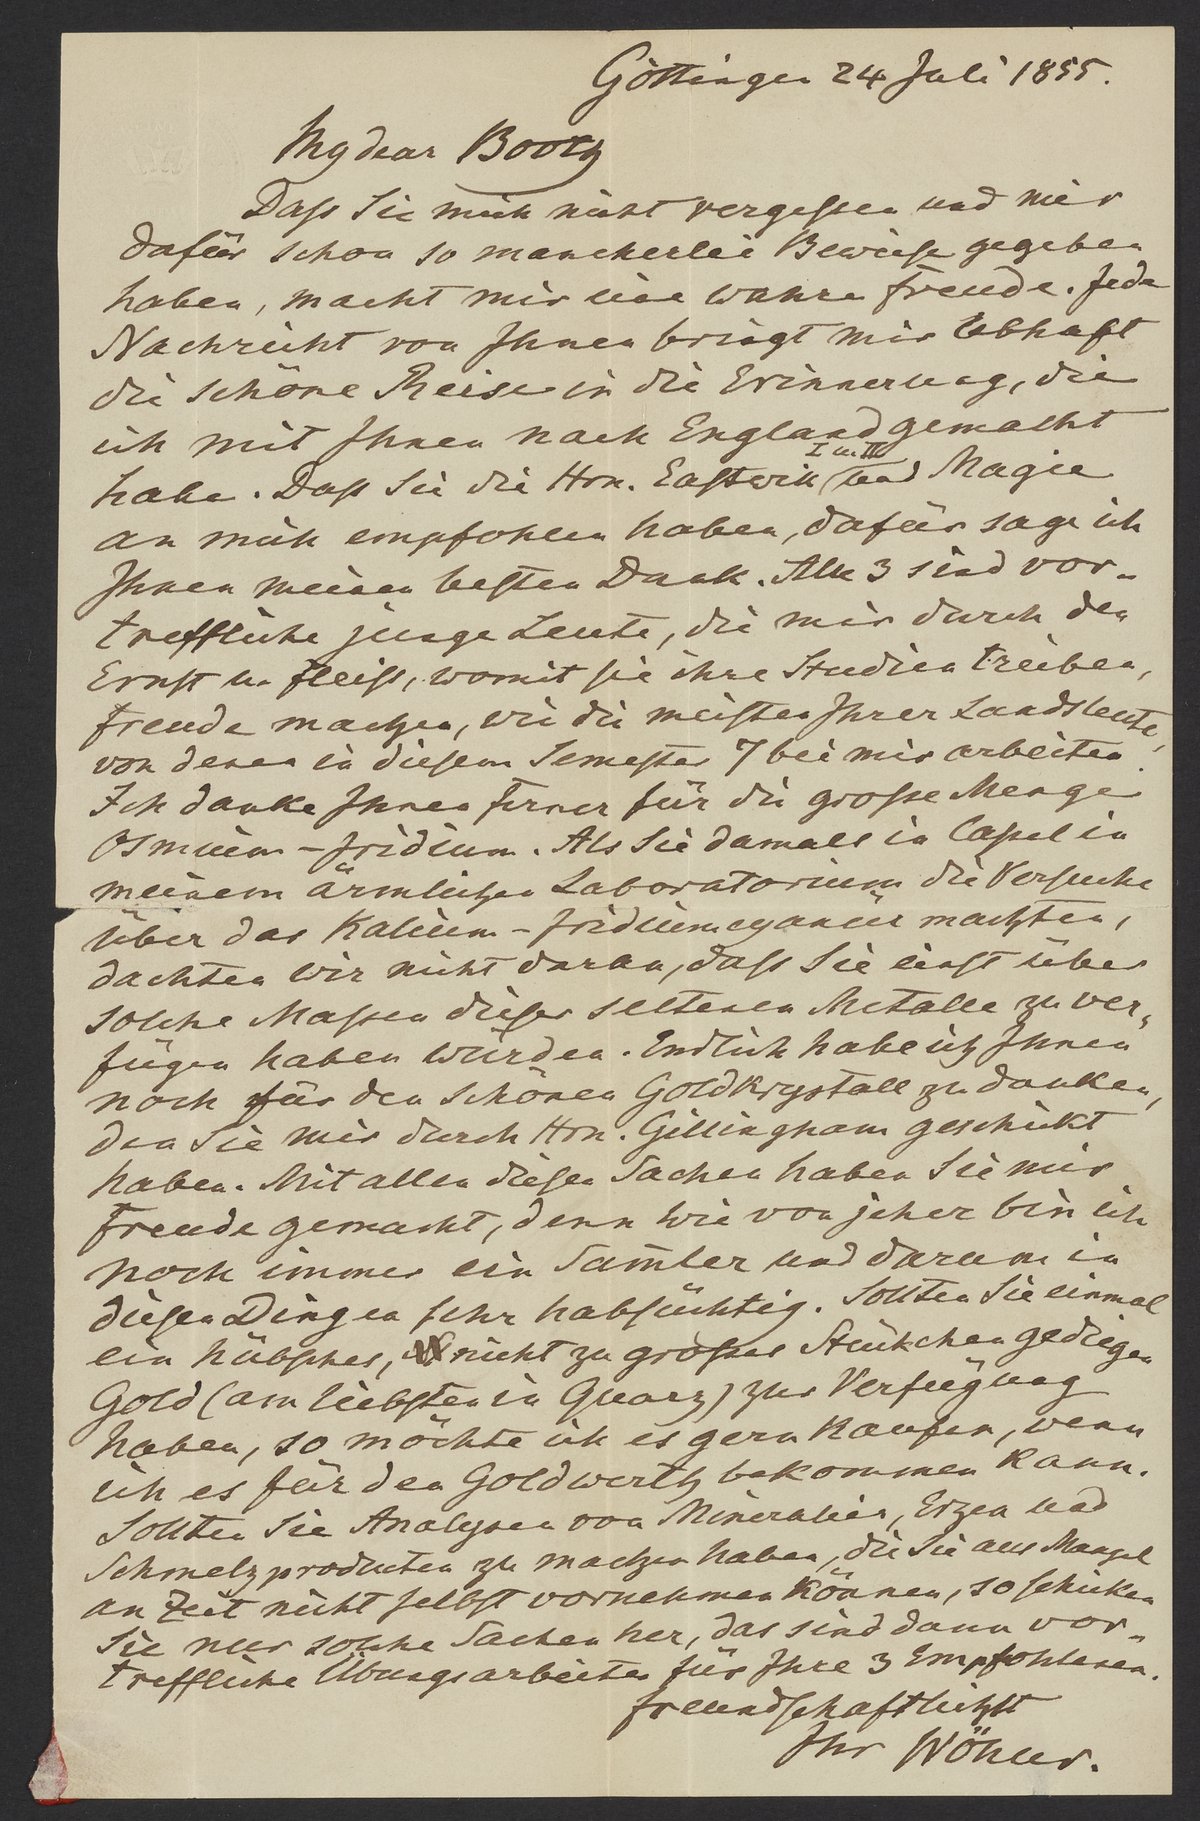 Göttingen 24 Juli 1855.
My dear Booth
Dass Sie mich nicht vergessen und mir
dafür schon so mancherlei Beweise gegeben
haben, macht mir eine wahre Freude. Jede
Nachricht von Ihnen bringt mir lebhaft
die schöne Reise in die Erinnerung, die
ich mit Ihnen nach England gemacht
I u. II
habe. Dass Sie die Hrn. Eastwik und Magee
an mich empfohlen haben, dafür sage ich
Ihnen meinen besten Dank. Alle 3 sind vor-
treffliche junge Leute, die mir durch den
Ernst u. Fleiss, womit sie ihre Studien treiben,
Freude machen, wie die meisten Ihrer Landsleute,
von denen in diesem Semester 7 bei mir arbeiten.
Ich danke Ihnen ferner für die grosse Menge
Osmium-Iridium. Als Sie damals in Cassel in
meinem ärmlichen Laboratorium die Versuche
über das Kalium-Iridiumcyanür machten,
dachten wir nicht daran, dass Sie einst über
solche Massen dieser seltenen Metalle zu ver-
fügen haben würden. Endlich habe ich Ihnen
noch für den schönen Goldkrystall zu danken,
den Sie mir durch Hrn. Gillingham geschickt
haben. Mit allen diesen Sachen haben Sie mir
Freude gemacht, denn wie von jeher bin ich
noch immer ein Sam̄ler und darum in
diesen Dingen sehr habsüchtig. Sollten Sie einmal
ein hübsches, nicht zu grosses Stückchen gediegen
Gold (am liebsten in Quarz) zur Verfügung
haben, so möchte ich es gern kaufen, wenn
ich es für den Goldwerth bekommen kann.
Sollten Sie Analysen von Mineralien, Erzen und
Schmelzproducten zu machen haben, die Sie aus Mangel
an Zeit nicht selbst vornehmen können, so schicken
Sie nur solche Sachen her, das sind dann vor-
treffliche Übungsarbeiten für Ihre 3 Empfohlenen.
freundschaftlichst
Ihr Wöhler.